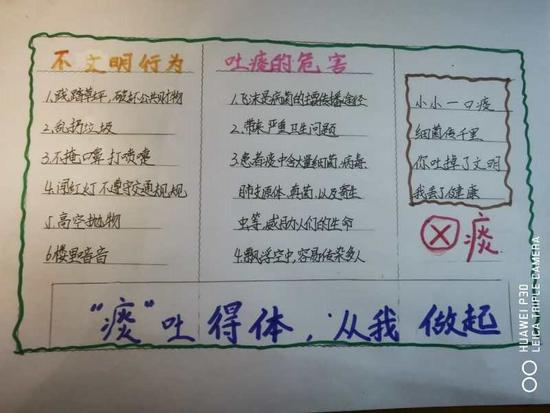 不文明行为
1.践踏草坪，破坏公共财物
2.乱扔垃圾
3.不掩口鼻打喷嚏
4.闯红灯不遵守交通规则
5.高空抛物
6.楼里噪音
吐痰的危害
1.飞沫是病菌的主要传播途径
2.带来严重卫生问题
3.患者痰中含大量细菌、病毒、
肺支原体、真菌,以及寄生
虫等,威胁人们的生命
4.飘浮空中,容易传染多人
小小一口痰
细菌传千里
你吐掉了文明
我丢了健康
痰
"痰"吐得体，从我做起
HUAWEI P30
LEICA TRIPLE CAMERA